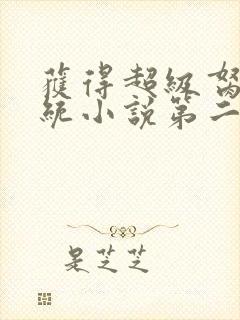 獲得超級努
統小說第二
是芝芝